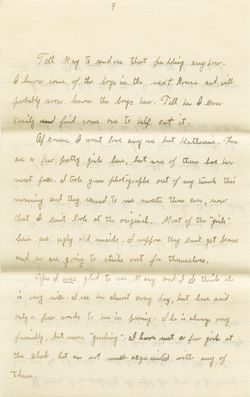 9
Tell May to send on that pudding anyhow.
I know some of the boys in the next House and will
probably soon know the boys here. Tell her I can
easily find some one to help eat it.
Of course I wont love any one but Katharine. There
are a few pretty girls here, but none of them has her
sweet face. I took your photographs out of my trunk this
morning and they seemed to me sweeter than ever, now
that I can't look at the original. Most of the "girls"
here are ugly old maids. I suppose they can't get beaus
and so are going to strike out for themselves.
I was glad to see Mary and I do think she
is very nice. I see her almost every day, but have said
only a few words to her in passing. She is always very
friendly, but never "gushing". I have met a few girls at
the club, but am not much acquainted with any of
them.